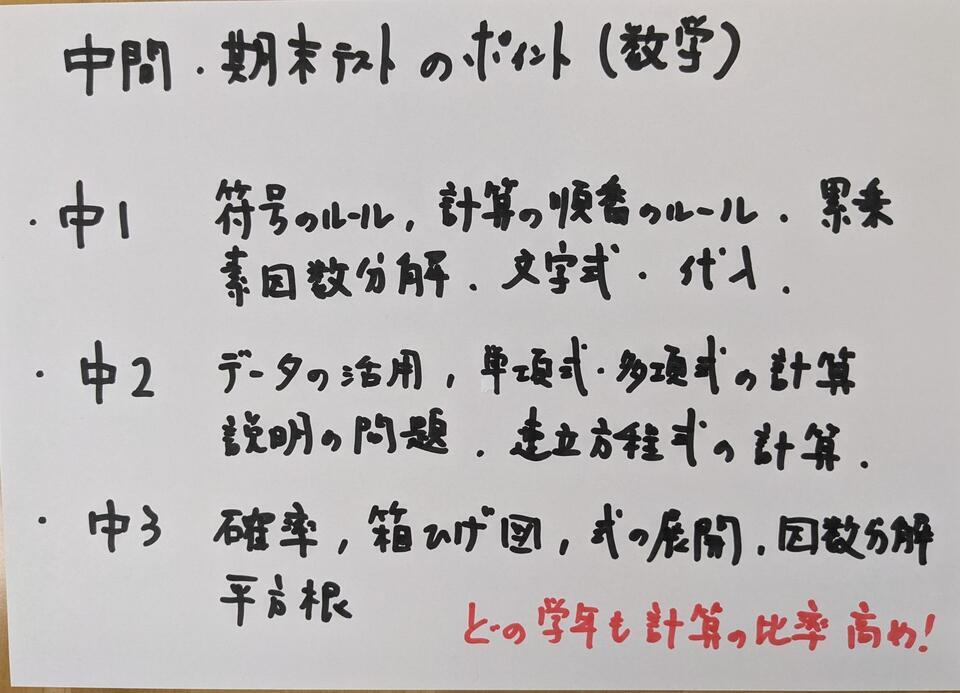 中間・期末テストのポイント(数学)
・中1 符号のルール, 計算の順番のルール. 累乗
素因数分解. 文字式・代入.
・中2 データの活用, 単項式・多項式の計算
説明の問題. 連立方程式の計算.
・中3 確率, 箱ひげ図, 式の展開. 因数分解
平方根
どの学年も計算の比率高め!